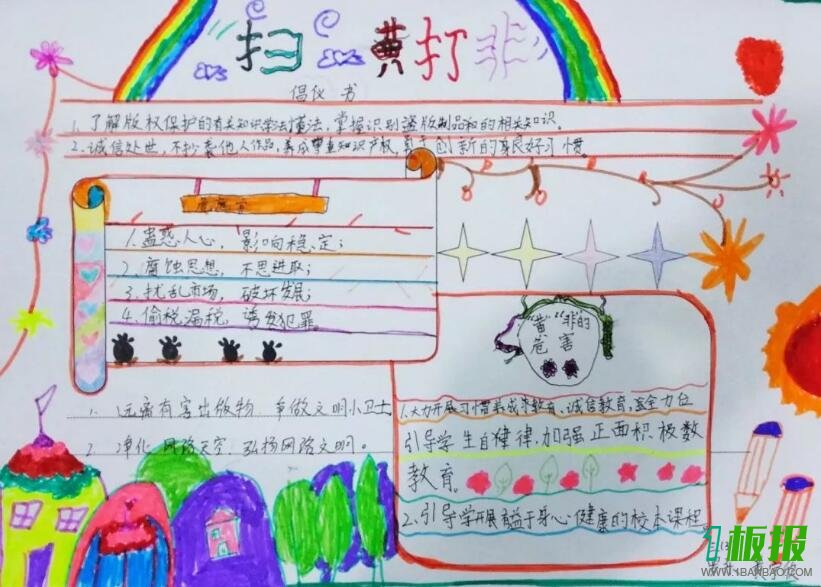 扫黄打非
倡仪书
1. 了解版权保护的有关知识学法懂法，掌握识别盗版制品和的相关知识。
2. 诚信处世，不抄袭他人作品，养成尊重知识产权，勇于创新的良好习惯。
1. 蛊惑人心，影响向稳定；
2. 腐蚀思想，不思进取；
3. 扰乱市场，破坏发展；
4. 偷税漏税，诱发犯罪。
"黄""非"的
危害
1. 远离有害出版物 争做文明小卫士
2. 净化网络天空，弘扬网络文明。
1. 大力开展习惯养成为教育，诚信教育，全力位
引导学生自律律，加强正面积极数
教育。
2. 引导学开展有益于身心健康的校本课程
板报
WWW.1BANBAO.COM